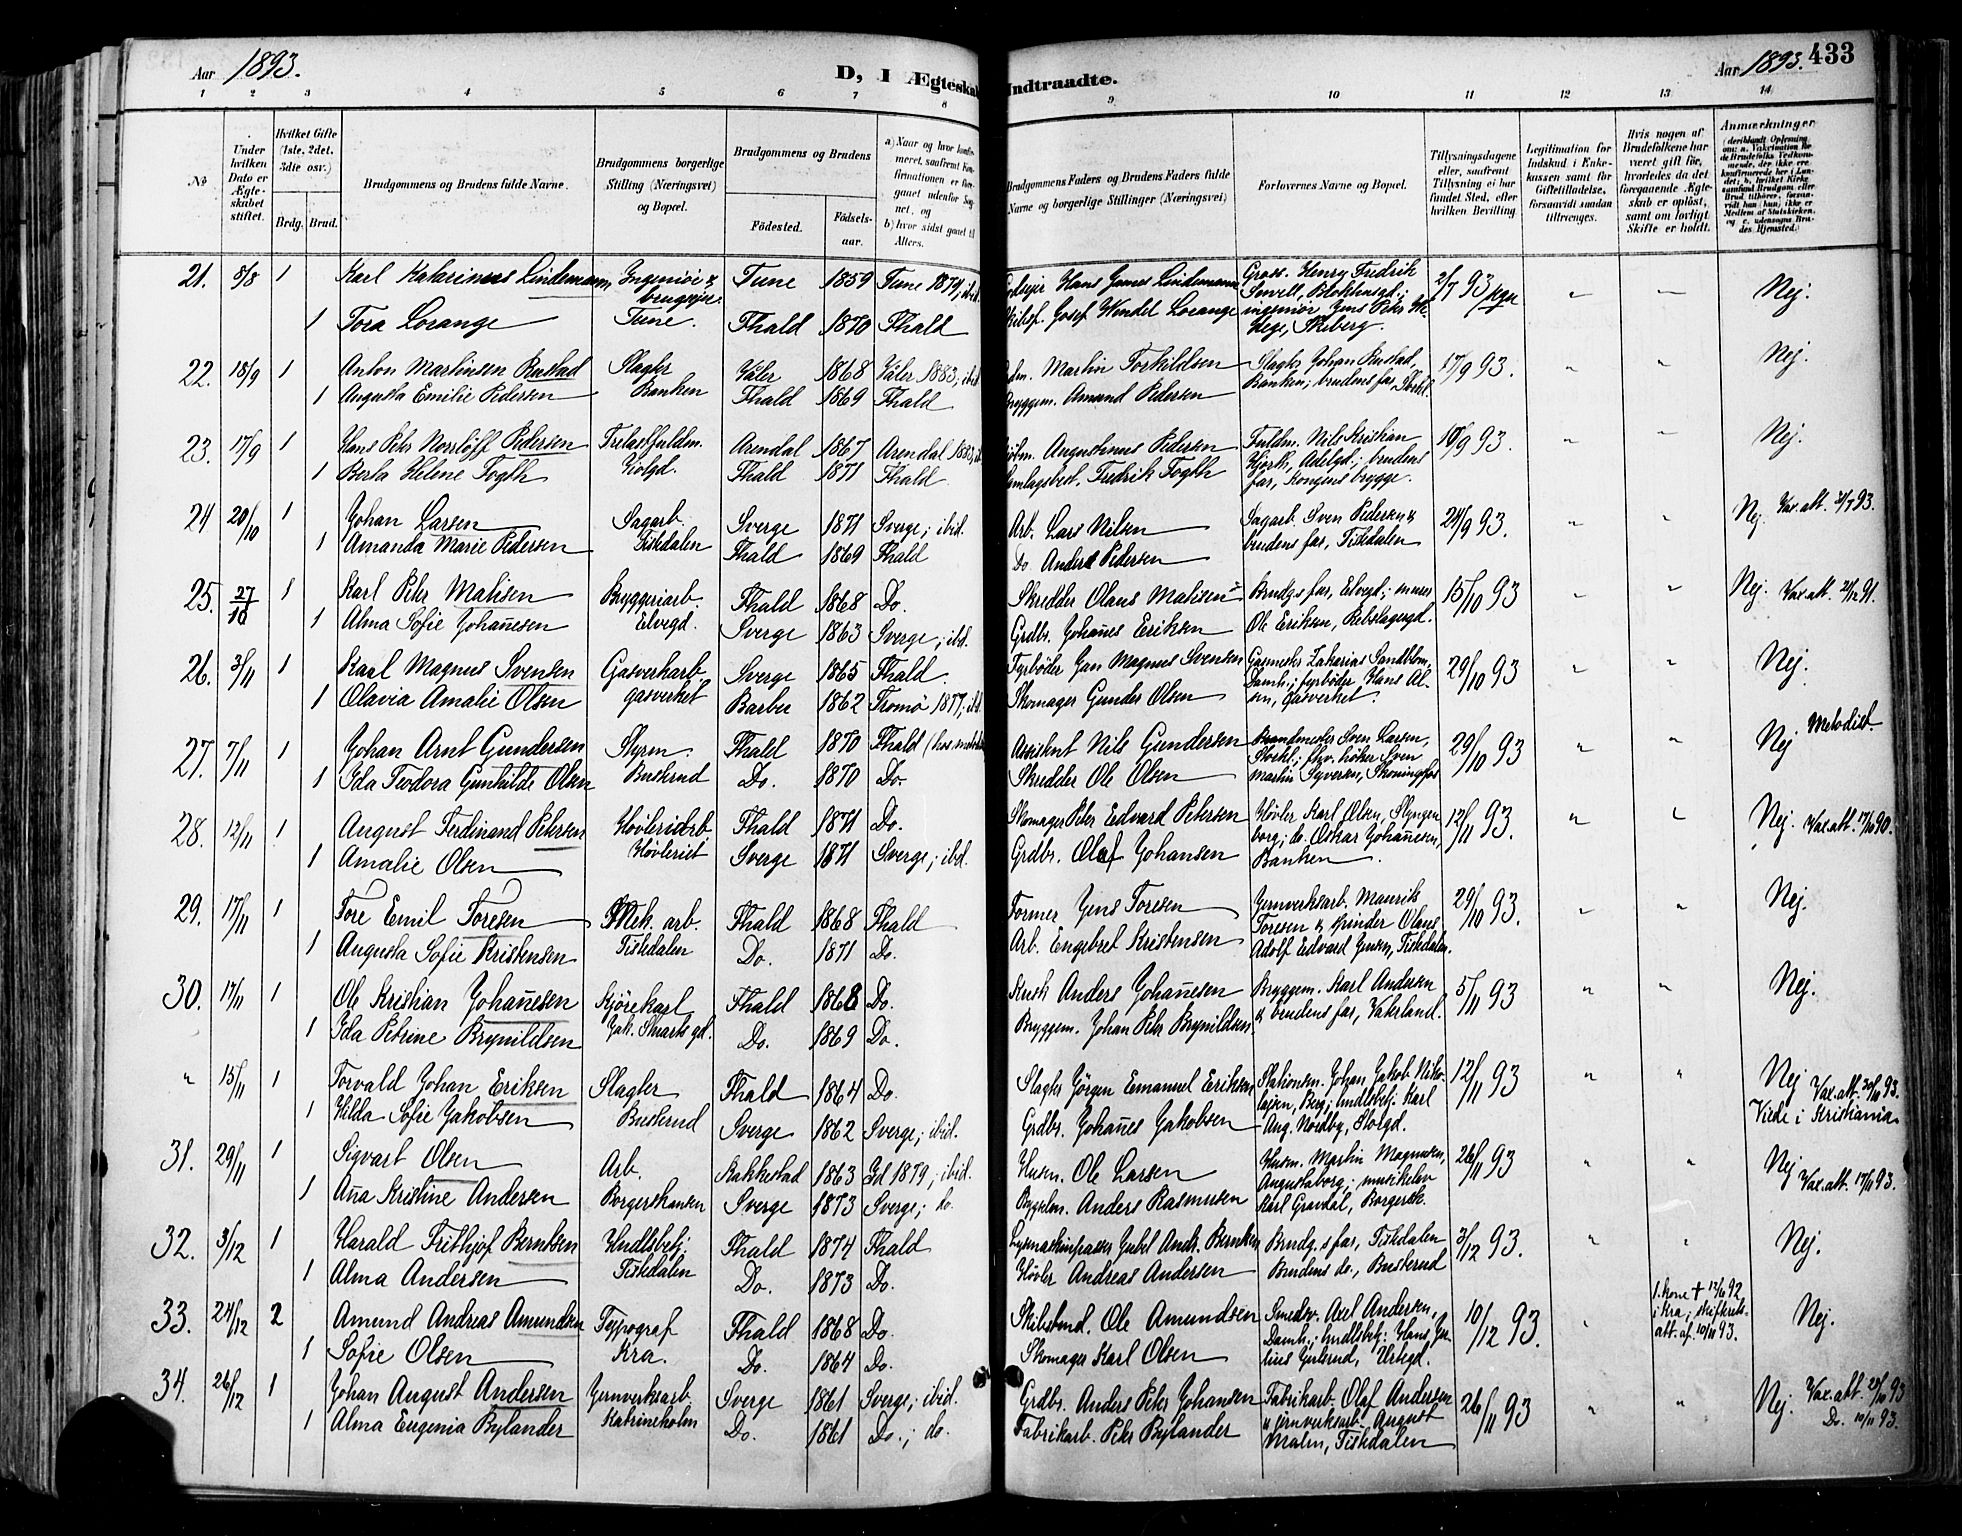 Aar 1893.
D, I Ægteskab
Indtraadte.
Aar 1893. 433
1 2 3 4 5 6 7 8 9 10 11 12 13 14
No
Under hvilken Dato er Ægteskabet stiftet.
Hvilket Gifte (1ste, 2det, 3die osv.)
Brdg. Brud.
Brudgommens og Brudens fulde Navne.
Brudgommens borgerlige Stilling (Næringsvei) og Bopæl.
Brudgommens og Brudens
Födested. Födselsaar.
Brudgommens Faders og Brudens Faders fulde Navne og borgerlige Stillinger (Næringsvei)
Forlovernes Navne og Bopæl.
Tillysningsdagene eller, saafremt Tillysning ei har fundet Sted, efter hvilken Bevilling
Legitimation for Indskud i Enkekassen samt for Giftetilladelse, forsaavidt saadan tiltrænges.
Hvis nogen af Brudefolkene har været gift för, hvorledes da det foregaaende Ægteskab er oplöst, samt om lovligt Skifte er holdt.
Anmærkninger
21. 8/8 1 Karl Katarinus Lindemann, Ingeniör & brugseier Tune 1859 Tune 1874; ibid. Hans James Lindemann Gross. Henry Fredrik 2/7 93 kgu " — Nej.
1 Tora Lorange Tune. Fhald 1870 Fhald Josef Wendel Lorange ingeniör Jens Petr
22. 18/9 1 Anton Martinsen Rustad Slagter Våler 1868 Våler 1883; ibid. Martin Torkildsen Slagter Johan Rustad, 17/9 93. " " Nej.
1 Augusta Emilie Pedersen Banken Fhald 1869 Fhald Bryggem. Amund Pedersen Banken; brudens far,
23. 17/9 1 Hans Petr Norrlöff Pedersen Trelastfuldm. Arendal 1867 Arendal 1883, Augustinus Pedersen Fuldm. Nils Kristian 10/9 93. " — Nej.
1 Berta Helene Fogth Violgd. Fhald 1871 Fhald. Fredrik Fogth Hjorth, Adelgd.; brudens far, Kongens brygge.
24 20/10 1 Johan Larsen Sagarb. Sverge 1871 Sverge; ibid. Arb. Lars Nilsen Sagarb. Sven Pedersen & 24/9 93. " " Nej. Vax.att. 31/7 93.
1 Amanda Marie Pedersen Tiskdalen Fhald 1869 Fhald Do Anders Pedersen brudens far, Tiskdalen
25. 27/10 1 Karl Petr Matisen Bryggeriarb. Fhald 1868 Do. Skredder Olaus Matisen Brudg.s far, Elvegd.; murer 15/10 93 " " Nej. Vax.att. 21/12 91.
1 Alma Sofie Johanesen Elvegd. Sverge 1863 Sverge; ibid. Grdbr. Johanes Eriksen Ole Eriksen, Rebslagergd.
26. 3/11 1 Karl Magnus Svensen Gasverkarb. Sverge 1865 Fhald. Fyrböder Jan Magnus Svensen Gasmester Zakarias Sandblom, 29/10 93 " " Nej.
1 Olavia Amalie Olsen gasverket Barbu 1862 Tromö 1877; ibid Skomager Gunder Olsen Damh.; fyrböder Hans Olsen, Gasverket.
27. 7/11 1 Johan Arnt Gundersen Styrm. Fhald 1870 Fhald (hos metodist. Assistent Nils Gundersen Brandmester Sven Larsen, 29/10 93 " " Nej Metodist.
1 Ida Teodora Gunhilde Olsen Buskrud Do. 1870 Do. Skredder Ole Olsen Storkl.; fhv. höker Sven Martin Syversen, Skoningfos
28. 12/11 1 August Ferdinand Petersen Hövleriarb. Fhald 1871 Do. Skomager Petr Edvard Petersen Hövler Karl Olsen, Slyngenborg; do. Oskar Johanesen, 12/11 93. " " Nej. Vax.att. 17/10 90.
1 Amalie Olsen Hövleriet Sverge 1871 Sverge; ibid. Grdbr. Olaf Johansen Banken.
29. 17/11 1 Tore Emil Toresen Mek. arb. Fhald 1868 Fhald Former Jens Toresen Jernverksarb. Maurits 29/10 93. " " Nej.
1 Augusta Sofie Kristensen Tiskdalen Do. 1871 Do. Arb. Engebret Kristensen Toresen & spinder Olaus Adolf Edvard Jensen, Tiskdalen.
30. 17/11 1 Ole Kristian Johanesen Kjörekarl Fhald 1868 Do. Kusk Anders Johanesen Bryggem. Karl Andersen 5/11 93 " " Nej.
1 Ida Petrine Brynildsen Jak. Stuarts gd. Do. 1869 Do. Bryggem. Johan Petr Brynildsen & brudens far, Vaterland.
" 15/11 1 Torvald Johan Eriksen Slagter Fhald 1864 Do. Slagter Jörgen Emanuel Eriksen Stationsm. Johan Jakob Nikolajsen, Berg; hndlsbetj. Karl 12/11 93 " " Nej Vax.att. 30/10 93.
1 Hilda Sofie Jakobsen Buskrud Sverge 1862 Sverge; ibid. Grdbr. Johanes Jakobsen Aug. Nordby, Storgd. Viede i Kristiania
31. 29/11 1 Sigvart Olsen Arb. Rakkestad 1863 Id 1879; ibid. Husm. Ole Larsen Husm. Martin Magnusen, 26/11 93 " " Nej Vax.att. 17/11 93.
1 Ana Kristine Andersen Borgerskansen Sverge 1873 Sverge; do. Anders Rasmusen Augustaborg; musikelev Karl Gravdal, Borgersk.
32. 3/12 1 Harald Fritjof Berntsen Hndlsbetj. Fhald 1874 Fhald Andr. Berntsen Brudg.s far, Tiskdalen 3/12 93. " " Nej.
1 Alma Andersen Tiskdalen Do. 1873 Do. Hövler Andreas Andersen Brudens do., Buskrud
33. 24/12 2 Amund Andreas Amundsen Typograf Fhald 1868 Do. Ole Amundsen Smedsv. Axel Andersen, 10/12 93. " 1. kone † 13/6 92, i Kra; skifterets att. af. 10/11 93. Nej.
1 Sofie Olsen Kra. Do. 1864 Do. Skomager Karl Olsen Damh.; hndlsbetj. Hans
34. 26/12 1 Johan August Andersen Jernverksarb. Sverge 1861 Sverge; ibid. Grdbr. Anders Petr Johansen Fabrikarb. Olaf Andersen 26/11 93 " " Nej. Vax.att. 23/10 93
1 Alma Eugenia Bylander Katrineholm Do. 1861 Do.; do. Fabrikarb. Petr Bylander & jernverksarb. August Malm, Tiskdalen Do. 10/11 93.